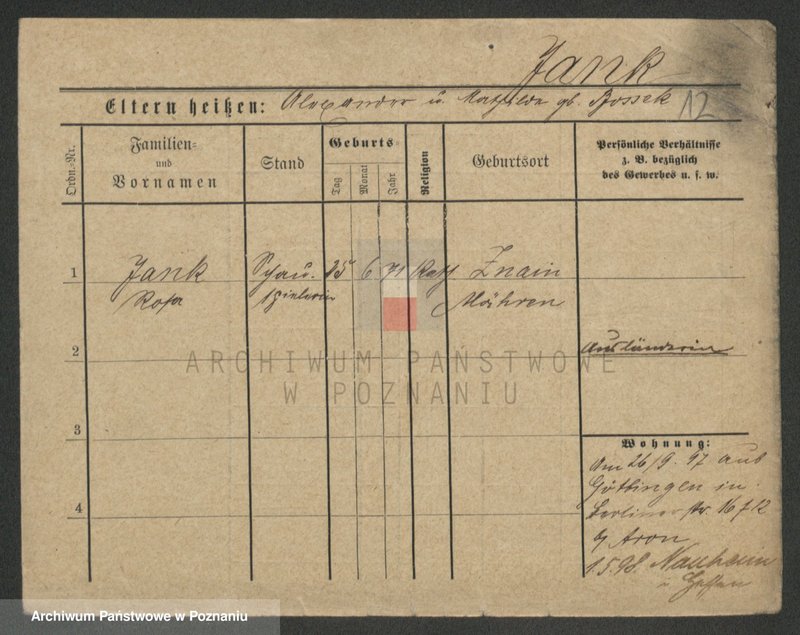 Jank
Eltern heißen: Alexander u. Mathilde gb. Bossek 12
Ordn.-Nr.
Familien- und Vornamen
Stand
Geburts-
Tag
Monat
Jahr
Religion
Geburtsort
Persönliche Verhältnisse
z. B. bezüglich
des Gewerbes u. s. w.
1 Jank Schau- 25 6 71 Kath Znaim
Rosa spielerin Mähren
2 Ausländerin
ARCHIWUM PAŃSTWOWE
W POZNANIU
3
Wohnung:
Am 26/9. 97 aus
Göttingen in
4 Berliner str. 16
b/ Aron
1.5.98. Nauheim
Hessen
Archiwum Państwowe w Poznaniu